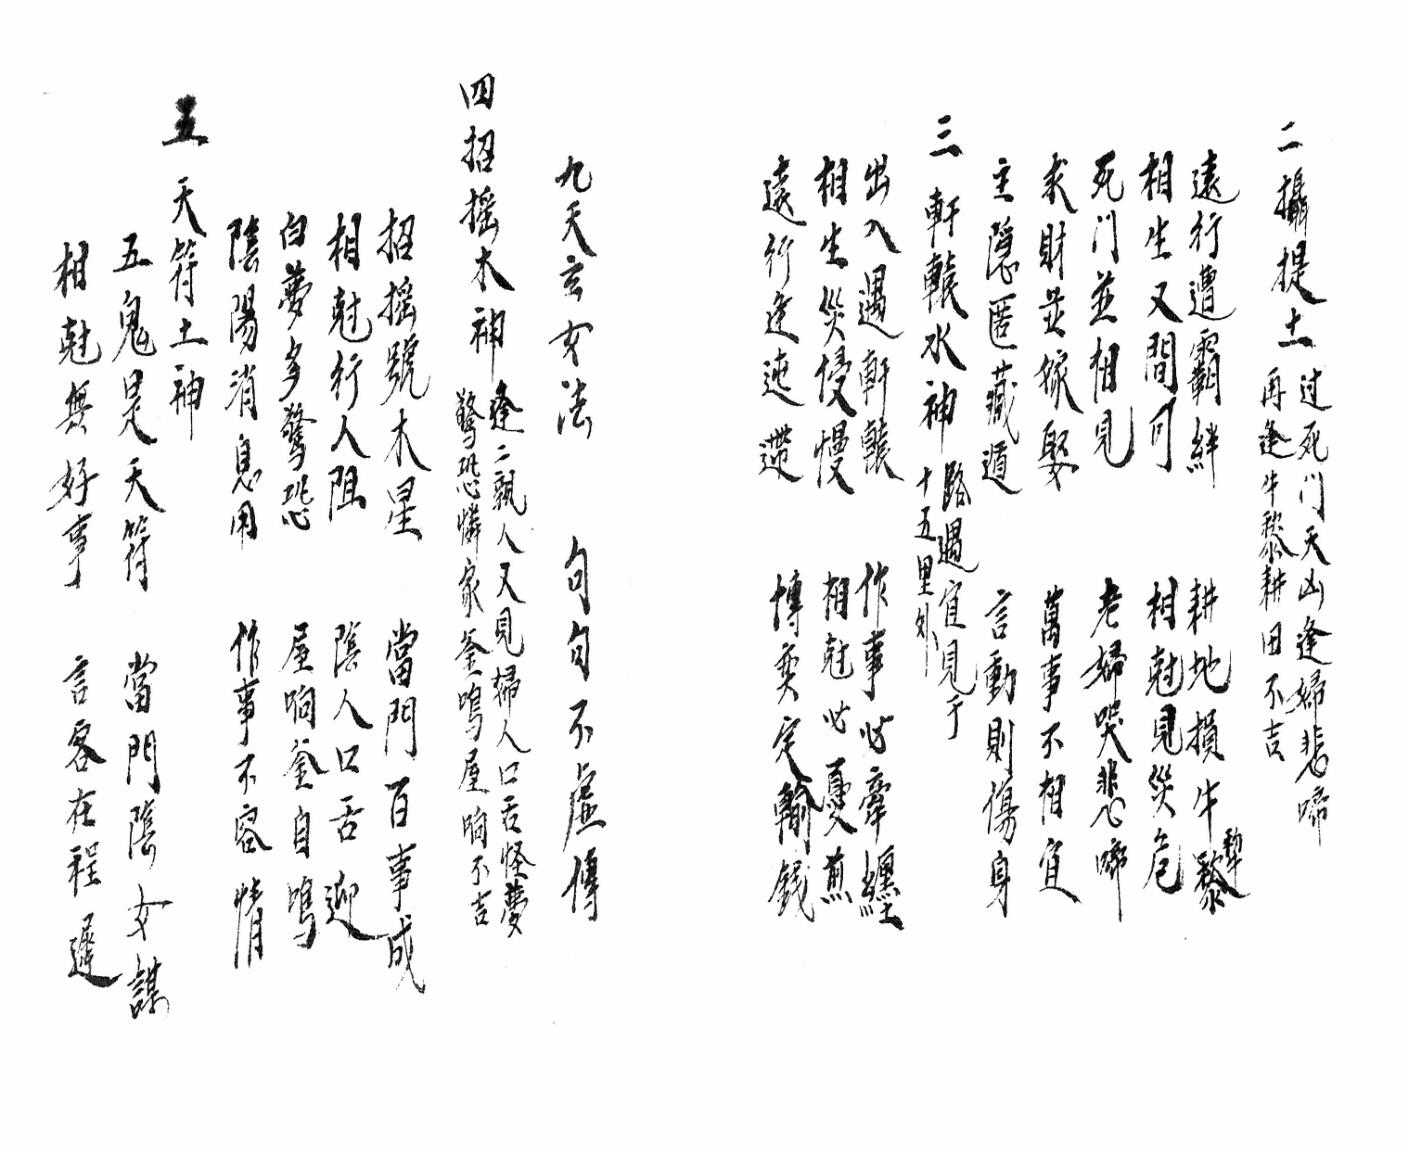 二攝提土
过死门天凶逢婦悲啼
再逢牛黎耕田不吉
遠行遭羈絆 耕地損牛黎
犁
相生又間可 相尅見災危
死门並相見 老婦哭悲啼
求財並嫁娶 萬事不相宜
主隱匿藏遁 言動則傷身
三 軒轅水神
路遇宜見于
十五里外
出入遇軒轅 作事必牽纏
相生災慢慢 相尅必憂煎
遠行逢迍滯 博奕定輸錢
九天玄女法 句句不虛傳
四招摇木神
逢二親人又見婦人口舌怪夢
驚恐憐家釜鳴屋响不吉
招摇號木星 當門百事成
相尅行人阻 陰人口舌迎
白夢多驚恐 屋响釜自鳴
陰陽消息用 作事不容情
五 天符土神
五鬼是天符 當門陰女謀
相尅無好事 言客在程遲